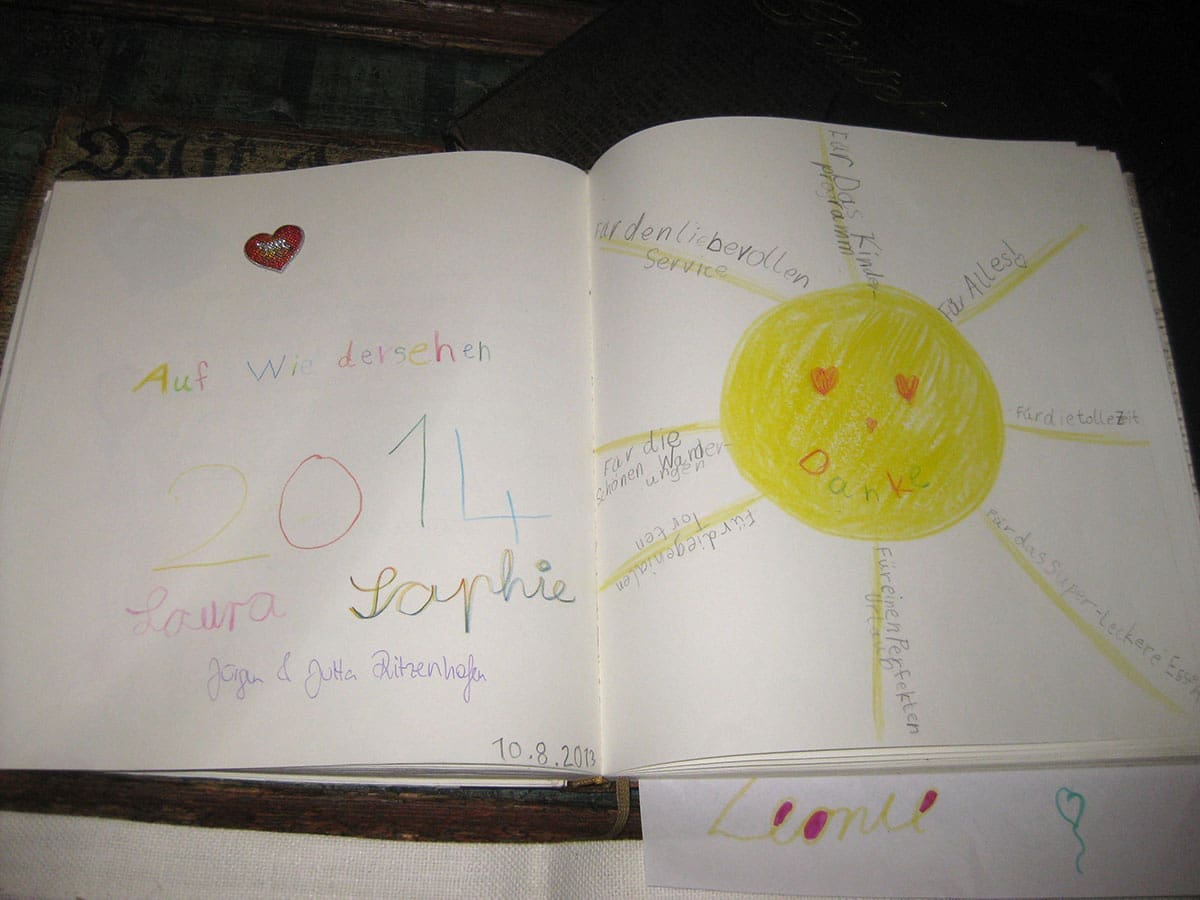 Auf Wiedersehen
2014
Laura Sophie
Jürgen & Jutta Ritzenhofen
10.8.2013
Für Das Kinder-
programm
Für Alles!
Für den liebevollen
Service
Für die tolle Zeit
Danke
Für die
schönen Wander-
ungen
Für die genialen
Torten
Für einen Perfekten
Urlaub
Für das Super-Leckere Essen
Leonie